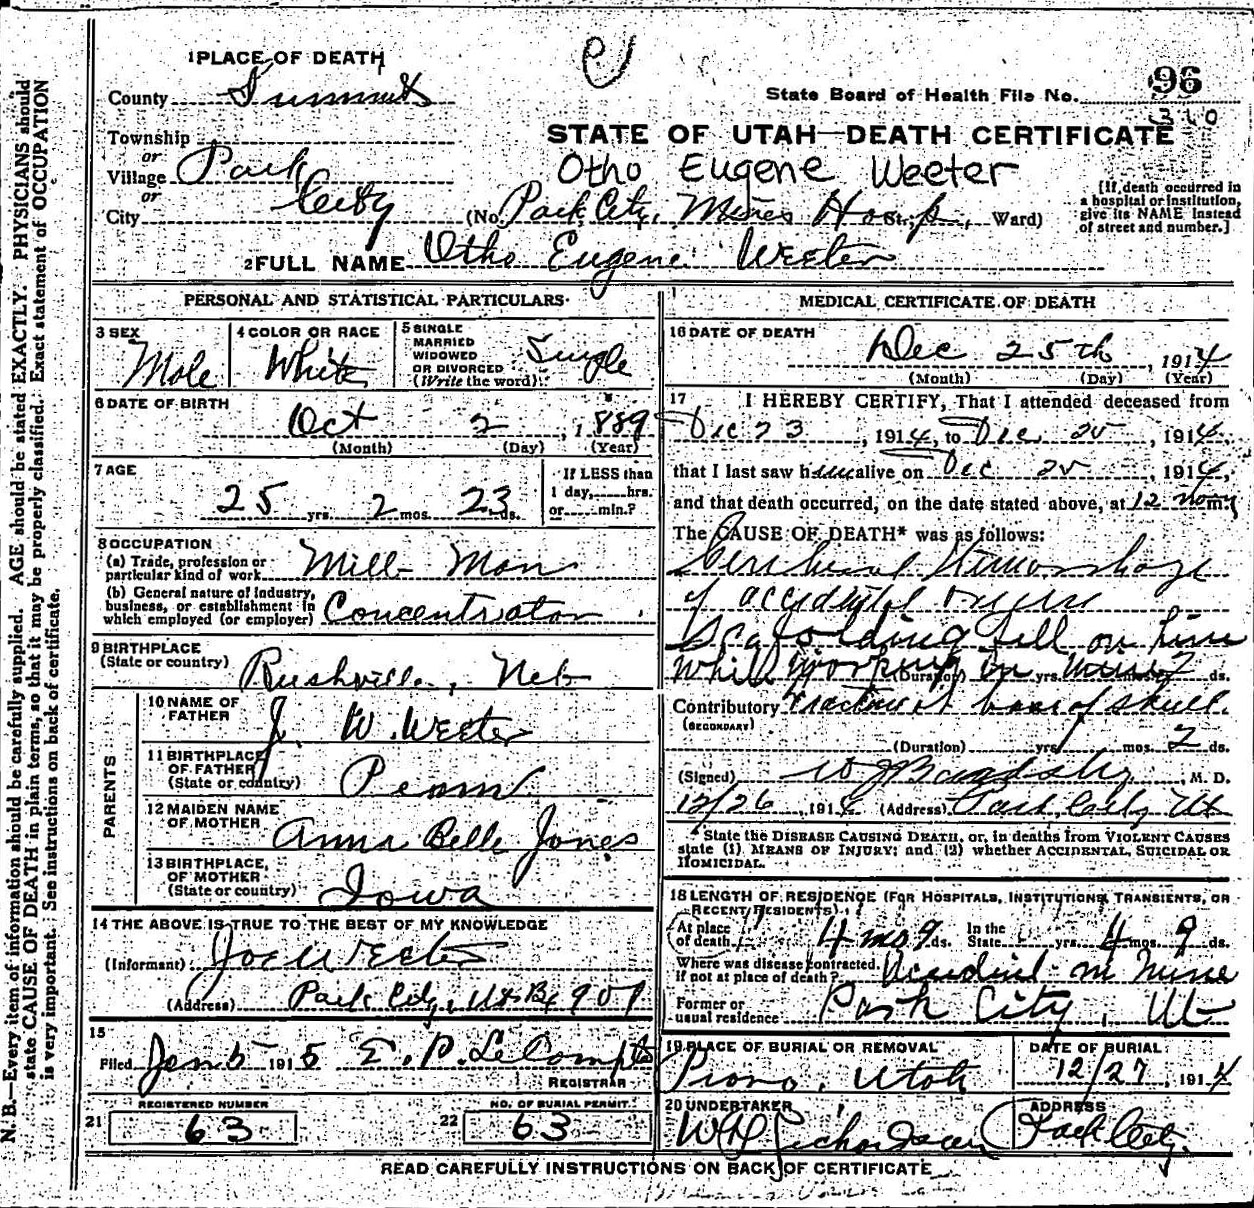 1 PLACE OF DEATH
County Summit
State Board of Health File No. 96
310
STATE OF UTAH—DEATH CERTIFICATE
Township
or
Village Park
or
City City
Otho Eugene Weeter
(No. Park City, Miners Hosp, St.; Ward)
[If death occurred in a hospital or institution, give its NAME instead of street and number.]
2 FULL NAME Otho Eugene Weeter
PERSONAL AND STATISTICAL PARTICULARS
3 SEX Male
4 COLOR OR RACE White
5 SINGLE MARRIED WIDOWED OR DIVORCED (Write the word) Single
6 DATE OF BIRTH
Oct 2, 1889
(Month) (Day) (Year)
7 AGE
25 yrs. 2 mos. 23 ds.
If LESS than 1 day, hrs. or min.?
8 OCCUPATION
(a) Trade, profession or particular kind of work Mill Man
(b) General nature of industry, business, or establishment in which employed (or employer) Concentrator
9 BIRTHPLACE (State or country) Rushville, Neb
PARENTS
10 NAME OF FATHER J. W. Weeter
11 BIRTHPLACE OF FATHER (State or country) Penn
12 MAIDEN NAME OF MOTHER Anna Belle Jones
13 BIRTHPLACE OF MOTHER (State or country) Iowa
14 THE ABOVE IS TRUE TO THE BEST OF MY KNOWLEDGE
(Informant) Joe Weeter
(Address) Park City, Ut Bx 907
15
Filed Jan 5 1915 E. P. LeCompte
REGISTRAR
21 REGISTERED NUMBER 63
22 NO. OF BURIAL PERMIT 63
MEDICAL CERTIFICATE OF DEATH
16 DATE OF DEATH
Dec 25th, 1914
(Month) (Day) (Year)
17 I HEREBY CERTIFY, That I attended deceased from
Dec 23, 1914, to Dec. 25, 1914,
that I last saw him alive on Dec 25, 1914,
and that death occurred, on the date stated above, at 12 m.
The CAUSE OF DEATH* was as follows:
Cerebral Hemorrhage
of accidental origin
Scafolding fell on him
while working in mine (Duration) yrs. 2 ds.
Contributory (SECONDARY) Fracture at base of skull.
(Duration) yrs. mos. 2 ds.
(Signed) W J Bardsley, M. D.
12/26, 1914 (Address) Park City Ut
State the DISEASE CAUSING DEATH, or, in deaths from VIOLENT CAUSES state (1) MEANS OF INJURY; and (2) whether ACCIDENTAL, SUICIDAL OR HOMICIDAL.
18 LENGTH OF RESIDENCE (FOR HOSPITALS, INSTITUTIONS, TRANSIENTS, OR RECENT RESIDENTS)
At place of death 4 mos 9 ds. In the State yrs. 4 mos. 9 ds.
Where was disease contracted, if not at place of death? Accident in Mine
Former or usual residence Park City, Ut
19 PLACE OF BURIAL OR REMOVAL Provo, Utah
DATE OF BURIAL 12/27, 1914
20 UNDERTAKER W H Richardson
ADDRESS Park City.
READ CAREFULLY INSTRUCTIONS ON BACK OF CERTIFICATE
N. B.—Every item of information should be carefully supplied. AGE should be stated EXACTLY. PHYSICIANS should
state CAUSE OF DEATH in plain terms, so that it may be properly classified. Exact statement of OCCUPATION
is very important. See instructions on back of certificate.